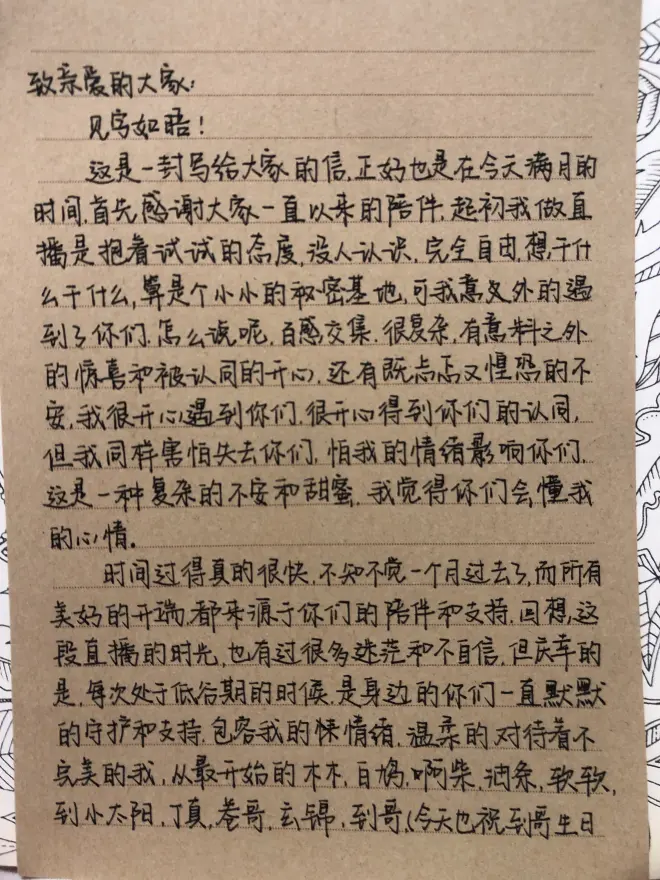 致亲爱的大家:
见字如晤!
这是一封写给大家的信,正好也是在今天满月的
时间,首先感谢大家一直以来的陪伴,起初我做直
播是抱着试试的态度,没人认识,完全自由,想干什
么干什么,算是个小小的秘密基地,可我意义外的遇
到了你们,怎么说呢,百感交集,很复杂,有意料之外
的惊喜和被认同的开心,还有既忐忑又惶恐的不
安,我很开心遇到你们,很开心得到你们的认同,
但我同样害怕失去你们,怕我的情绪影响你们,
这是一种复杂的不安和甜蜜,我觉得你们会懂我
的心情。
时间过得真的很快,不知不觉一个月过去了,而所有
美好的开端,都来源于你们的陪伴和支持,回想,这
段直播的时光,也有过很多迷茫和不自信,但庆幸的
是,每次处于低谷期的时候,是身边的你们一直默默
的守护和支持,包容我的坏情绪,温柔的对待着不
完美的我,从最开始的木木,白鸠,啊柴,油条,软软,
到小太阳,丁真,卷哥,玄锦,到哥,(今天也祝到哥生日